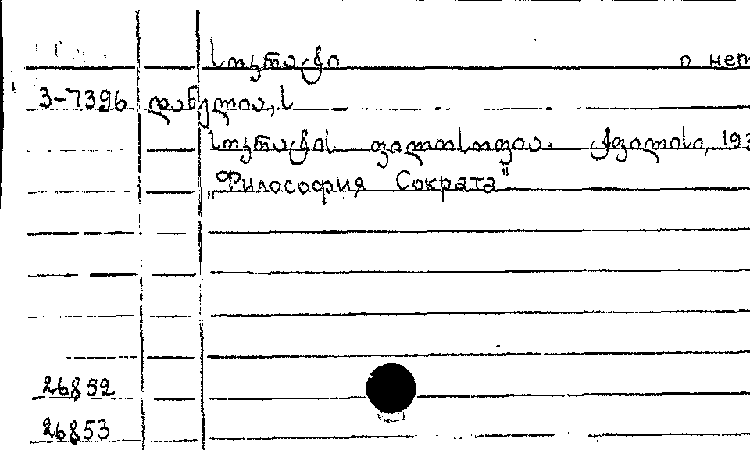 სოკრატე о нем
3-7396 დანელია, ს
სოკრატეს ფილოსოფია. ტფილისი, 193
"Философия Сократа"
26852
26853